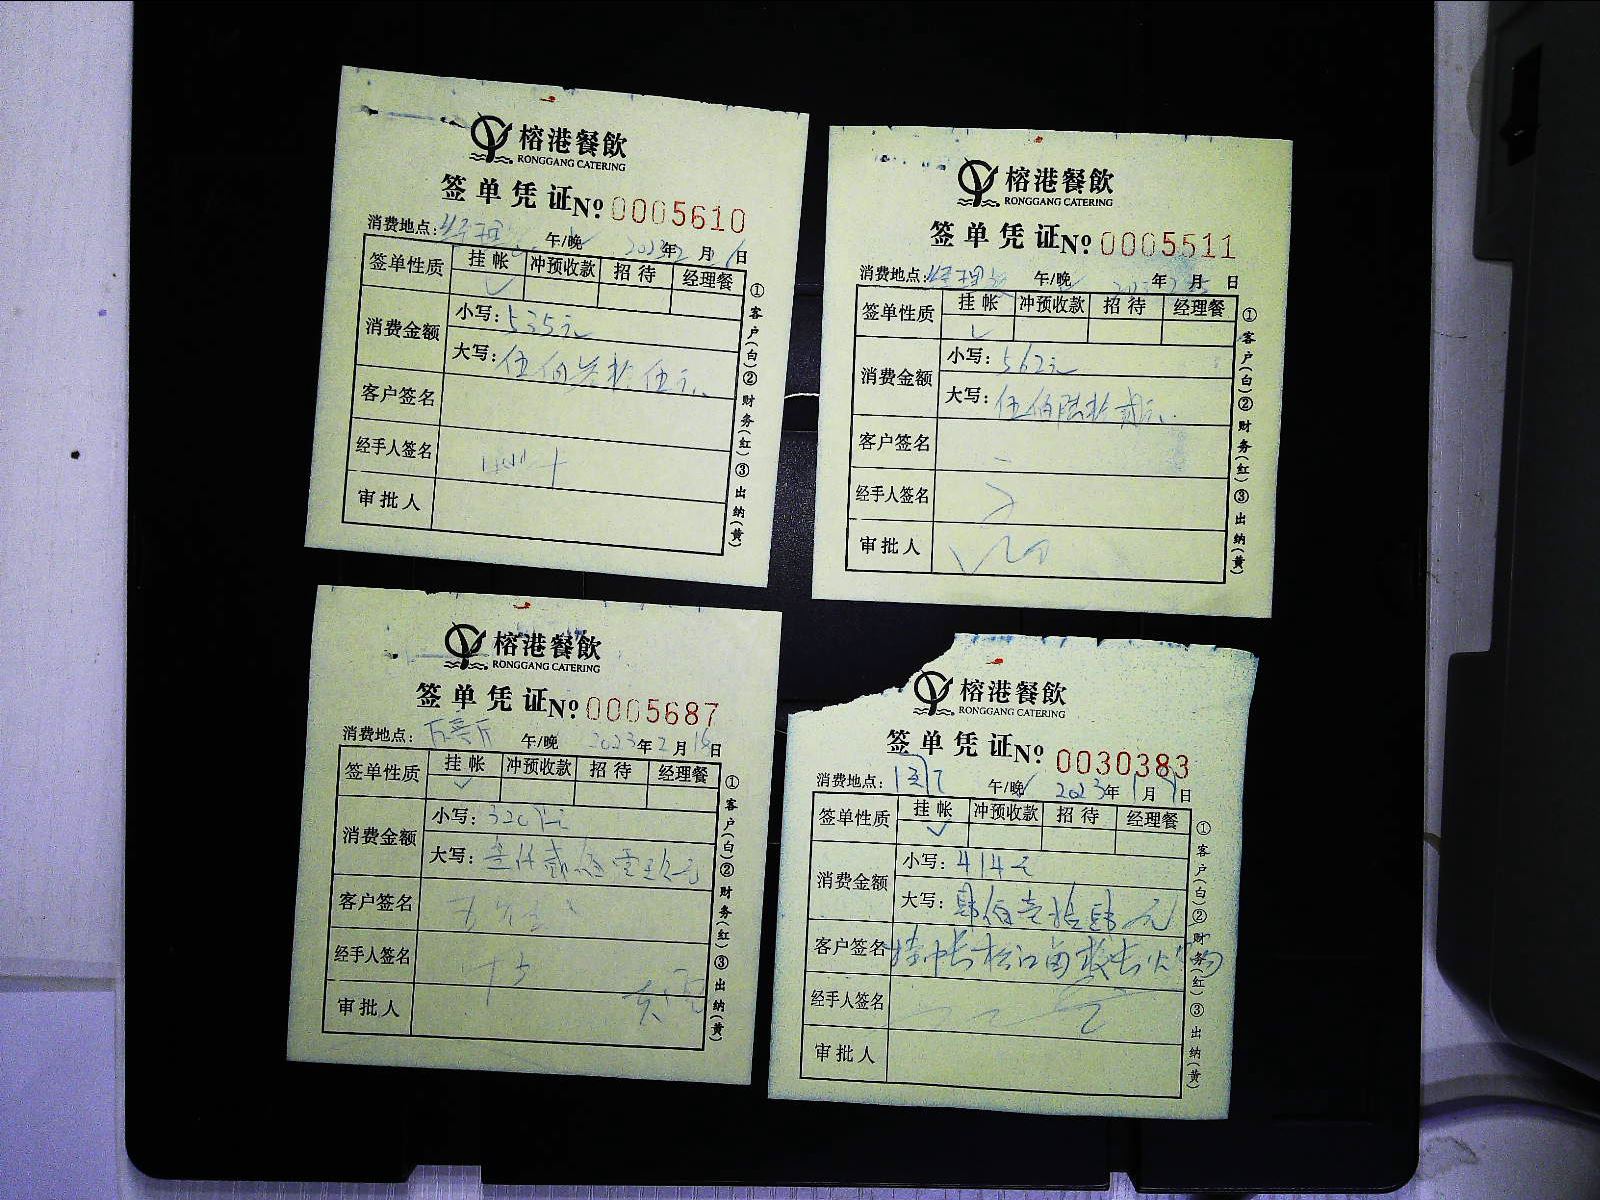 榕港餐飲
RONGGANG CATERING
签单凭证 Nº 0005610
消费地点: 经理 午/晚 2023年2月 日
签单性质 挂帐 冲预收款 招待 经理餐
消费金额 小写: 535元
大写: 伍佰叁拾伍元
客户签名
经手人签名
审批人
①客户(白)②财务(红)③出纳(黄)
榕港餐飲
RONGGANG CATERING
签单凭证 Nº 0005511
消费地点: 经理 午/晚 年 月 日
签单性质 挂帐 冲预收款 招待 经理餐
消费金额 小写: 562元
大写: 伍佰陆拾贰元
客户签名
经手人签名
审批人
①客户(白)②财务(红)③出纳(黄)
榕港餐飲
RONGGANG CATERING
签单凭证 Nº 0005687
消费地点: 午/晚 2023年2月 日
签单性质 挂帐 冲预收款 招待 经理餐
消费金额 小写:
大写:
客户签名
经手人签名
审批人
①客户(白)②财务(红)③出纳(黄)
榕港餐飲
RONGGANG CATERING
签单凭证 Nº 0030383
消费地点: 午/晚 2023年1月 日
签单性质 挂帐 冲预收款 招待 经理餐
消费金额 小写: 414元
大写: 肆佰壹拾肆元
客户签名 挂帐松江
经手人签名
审批人
①客户(白)②财务(红)③出纳(黄)